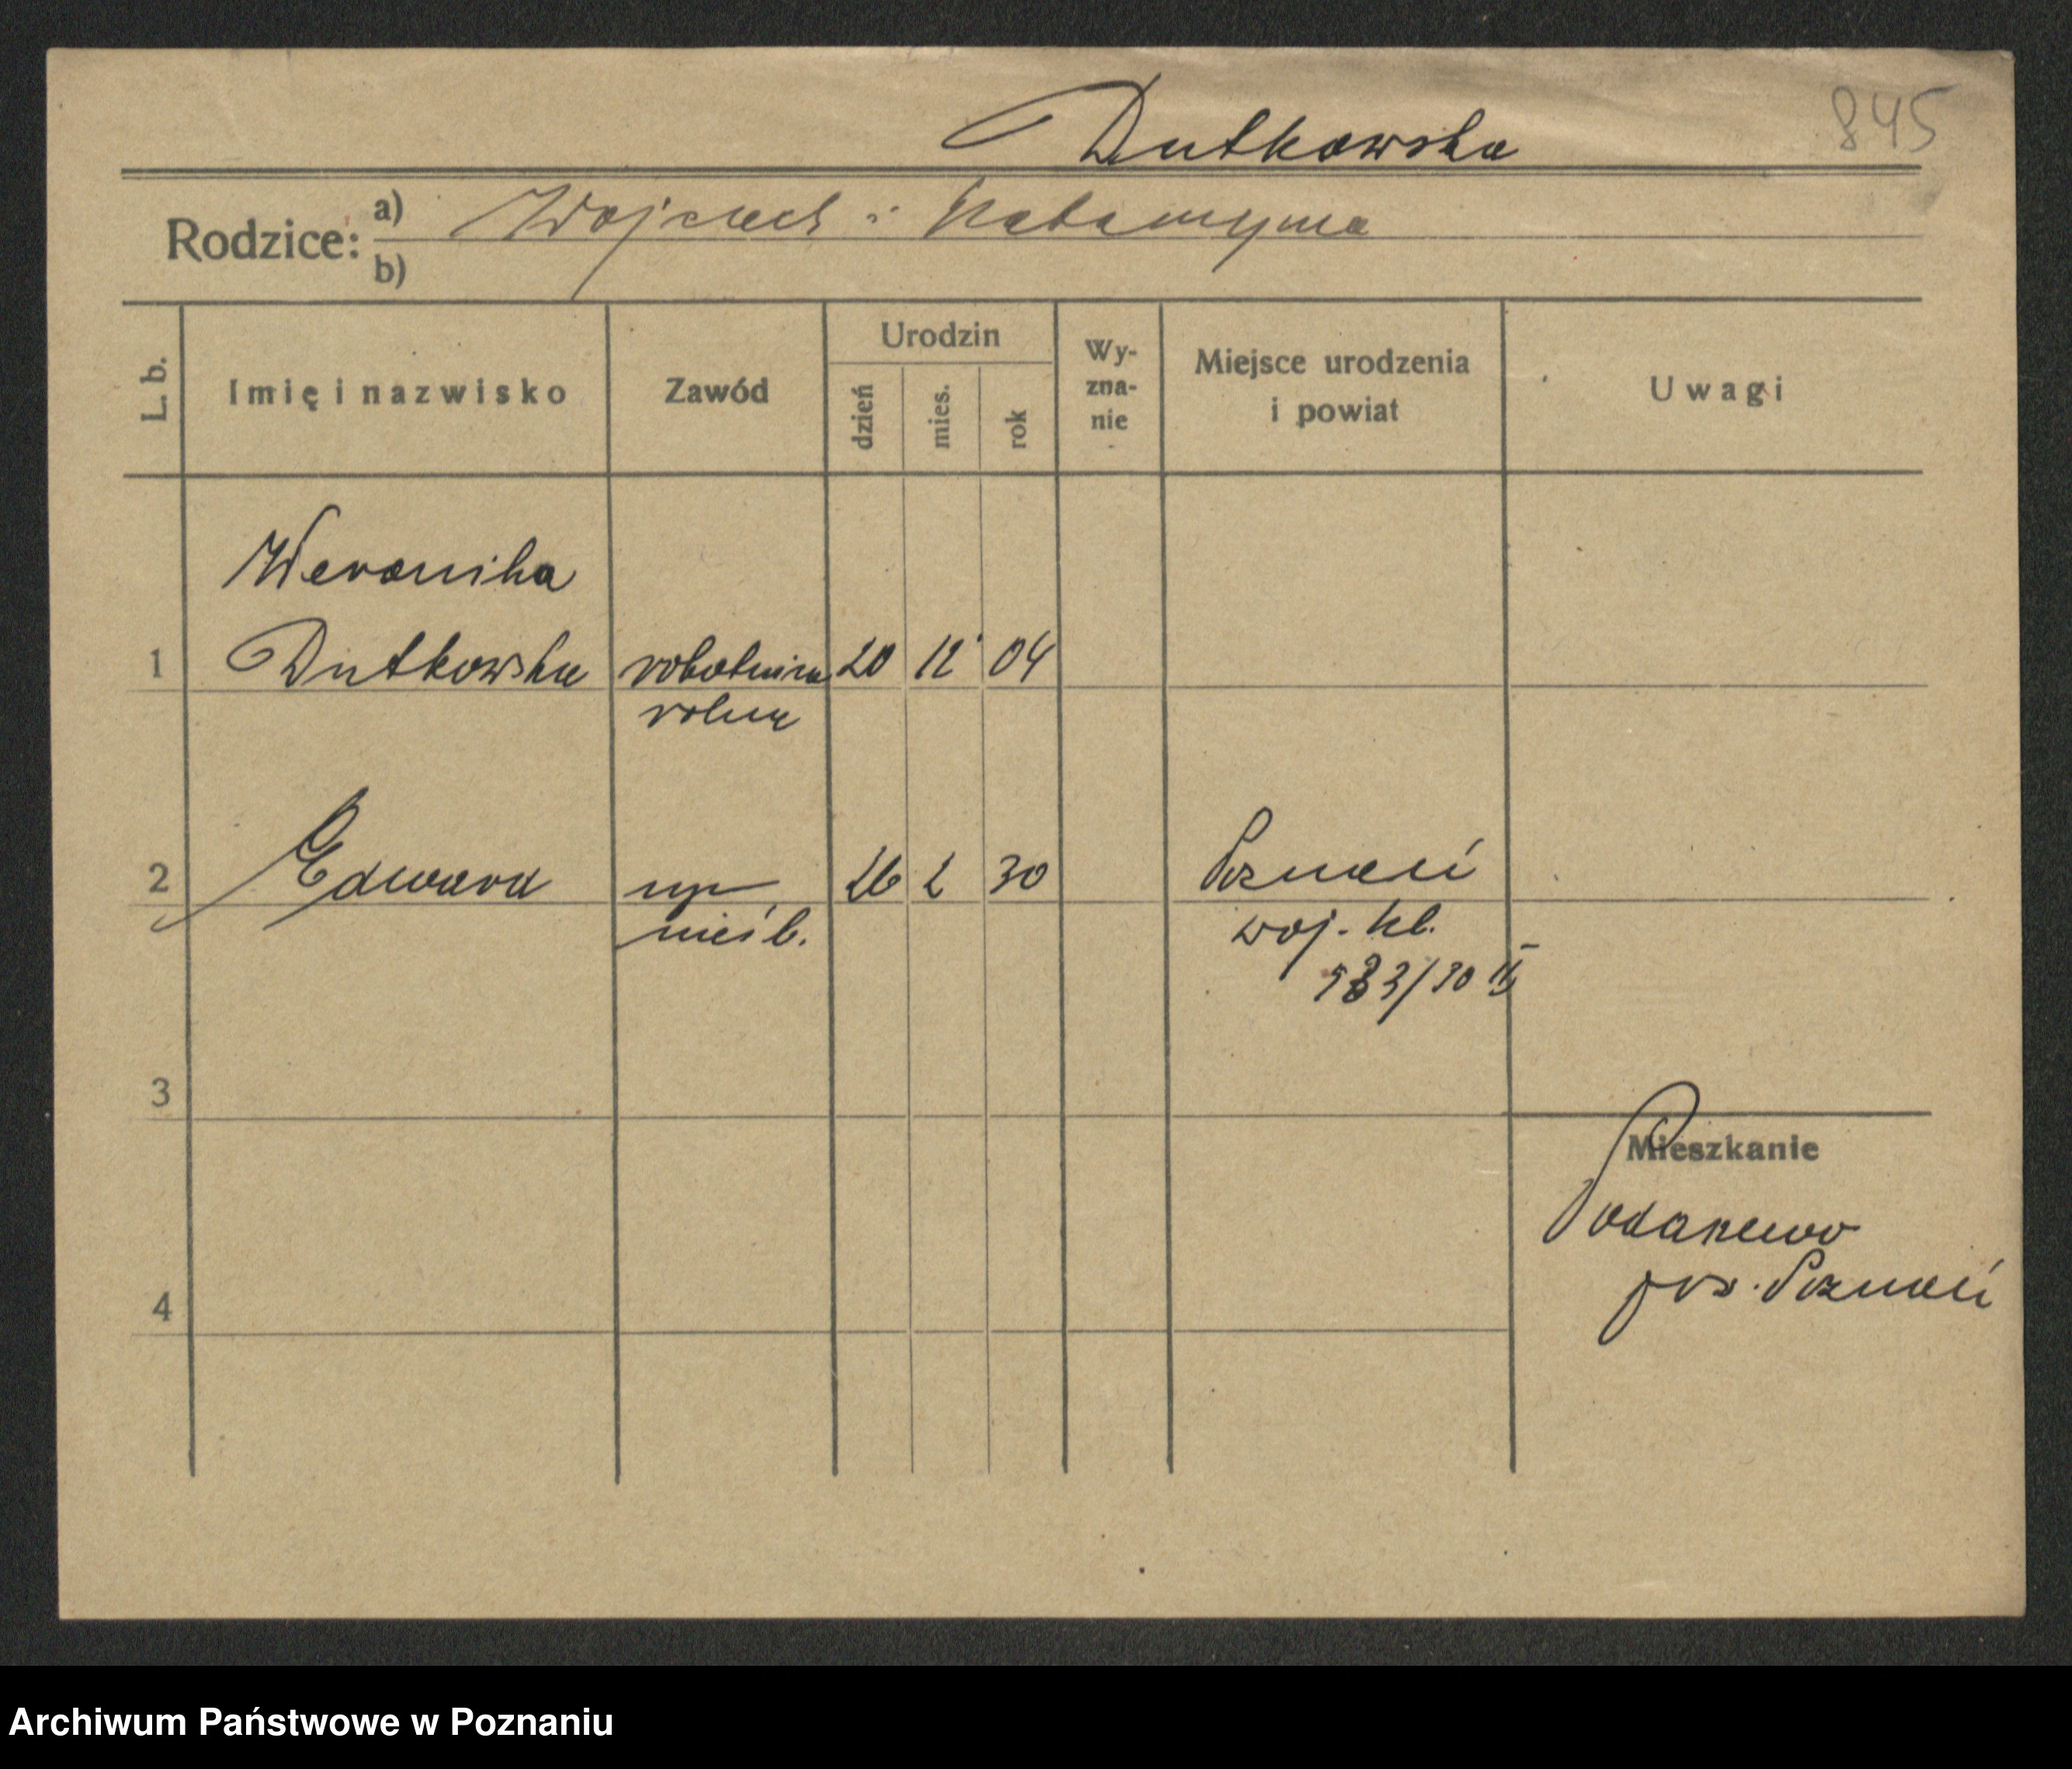 Dutkowska 845
Rodzice: a) Wojciech i Katarzyna
b)
L. b. Imię i nazwisko Zawód Urodzin dzień mies. rok Wy-zna-nie Miejsce urodzenia i powiat Uwagi
Weronika
1 Dutkowska robotnica 20 12 04
rolna
2 Edward syn 26 2 30 Poznań
nieśl. woj. kl.
3
Mieszkanie
pow. Poznań
4
Archiwum Państwowe w Poznaniu